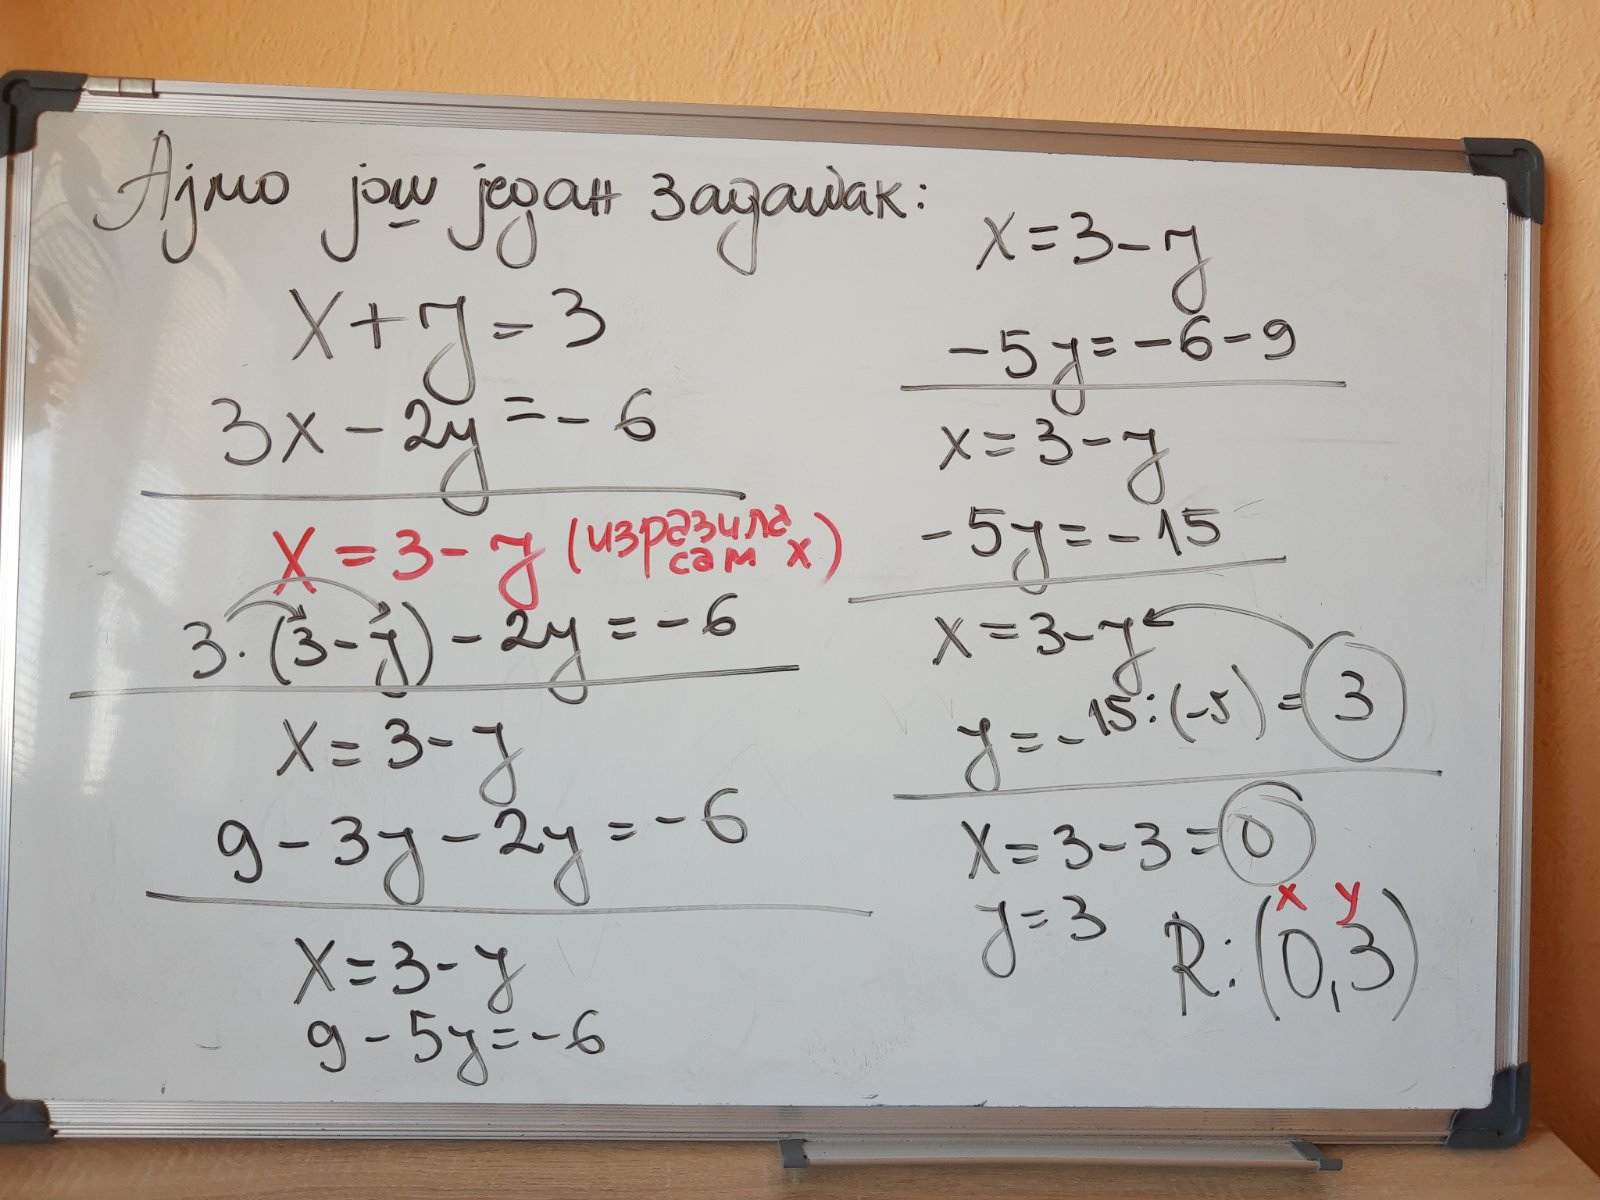 Ајмо још један задатак:
x+y=3
3x-2y=-6
x=3-y (изразила
сам x)
3·(3-y)-2y=-6
x=3-y
9-3y-2y=-6
x=3-y
9-5y=-6
x=3-y
-5y=-6-9
x=3-y
-5y=-15
x=3-y
y=-15:(-5)=3
x=3-3=0
y=3
x y
R:(0,3)